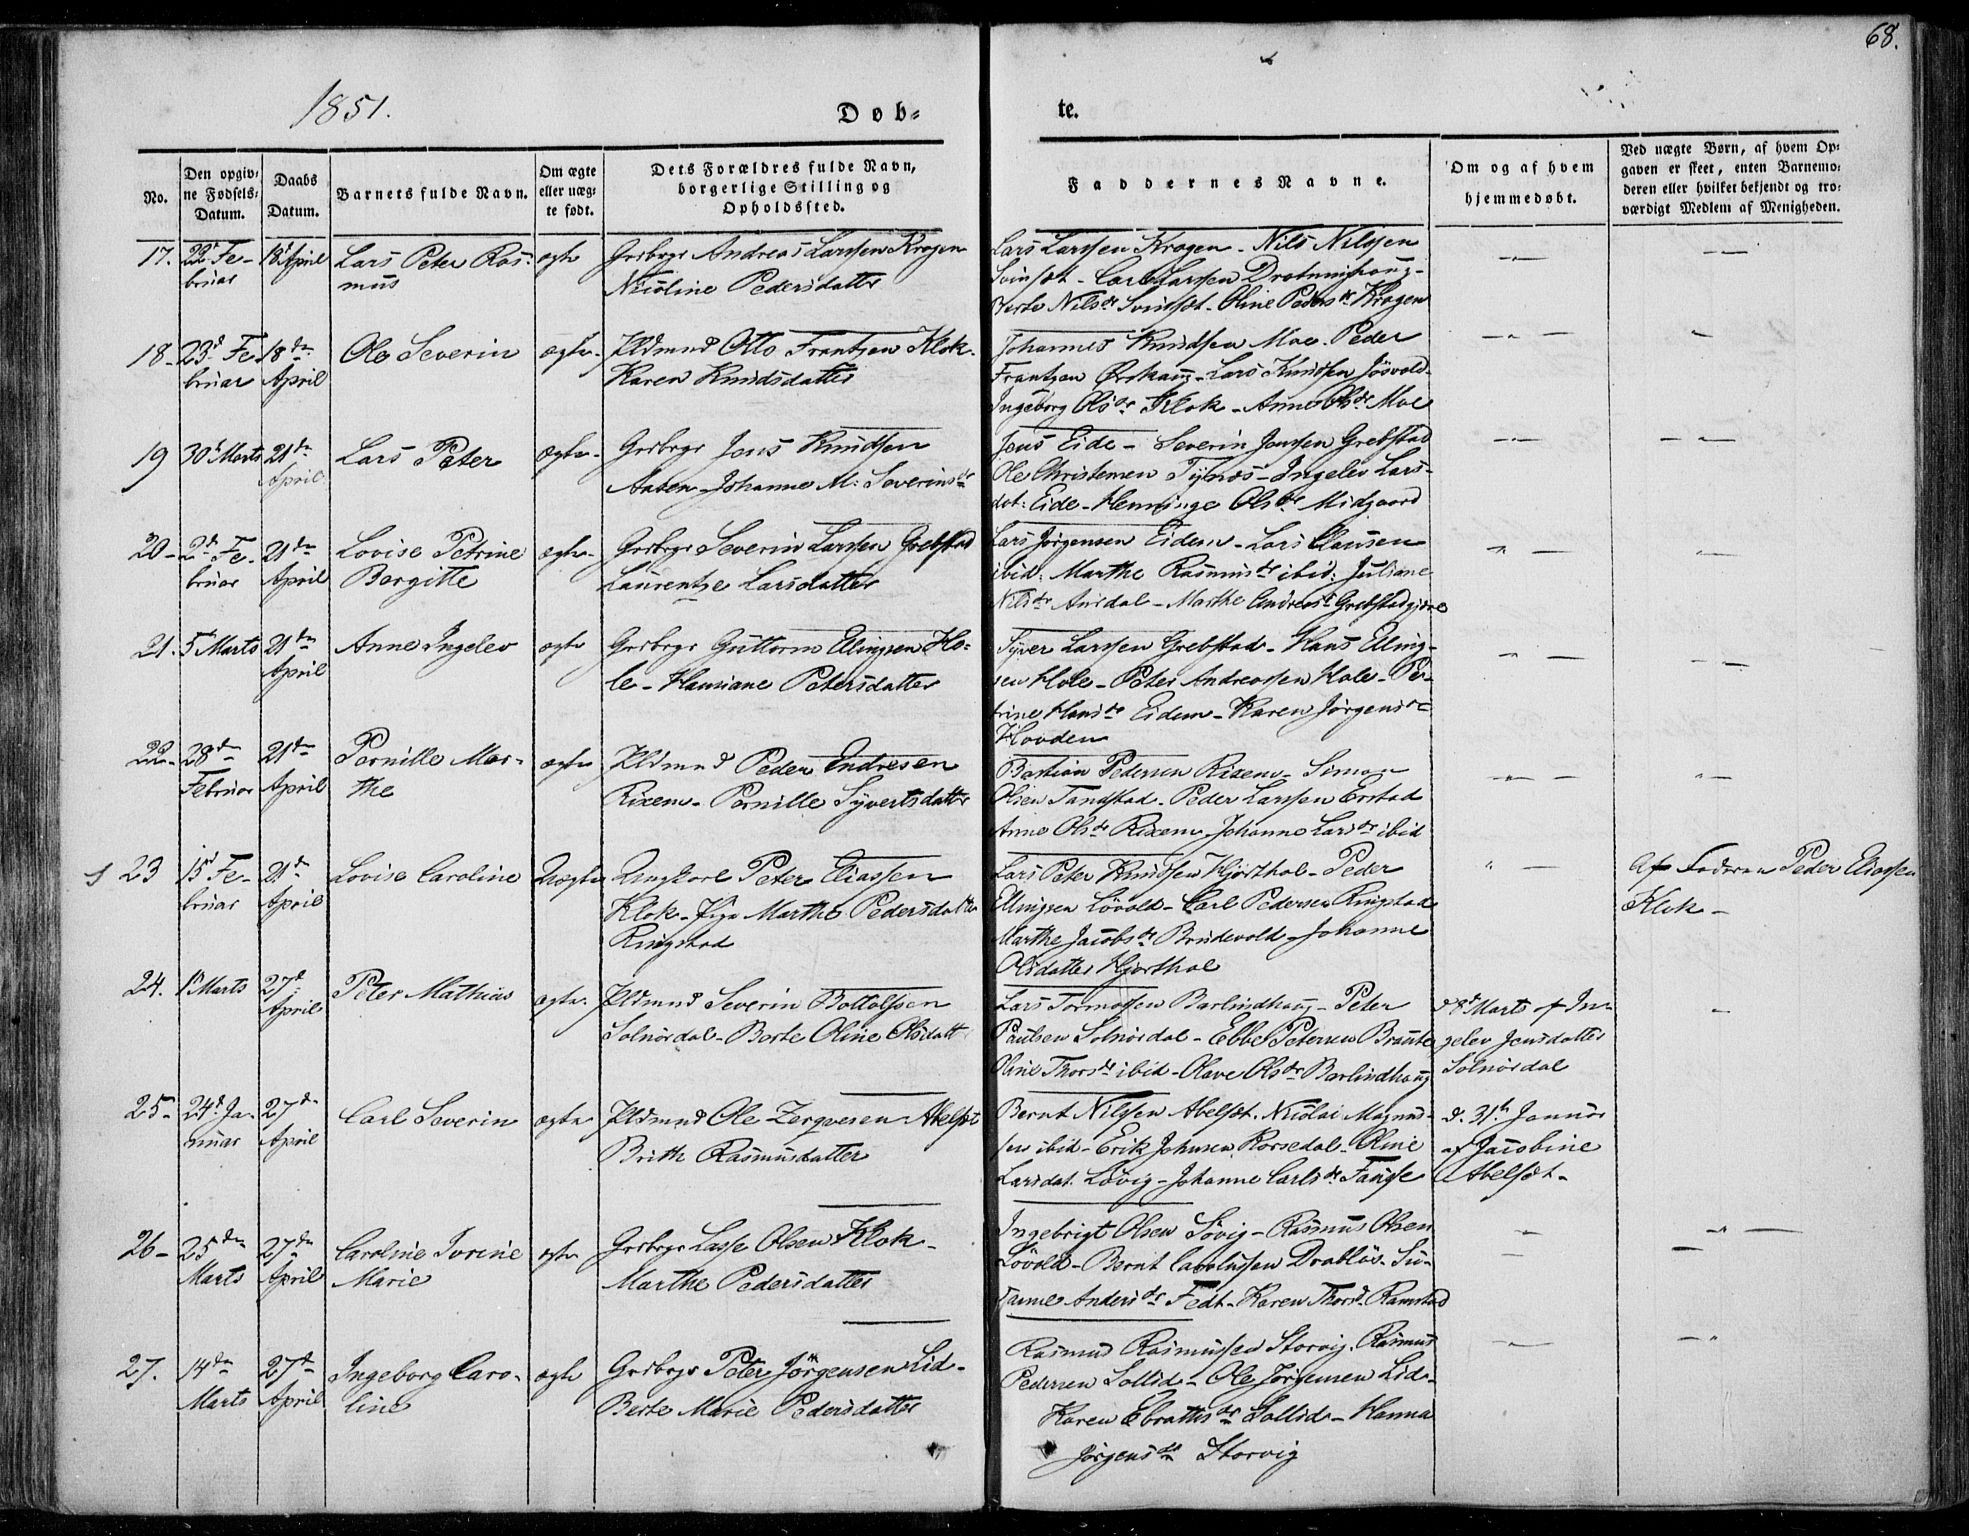 68.
1851.
Døb-
te.
No.
Den opgiv-
ne Fødsels-
Datum.
Daabs
Datum.
Barnets fulde Navn.
Om ægte
eller uæg-
te født.
Dets Forældres fulde Navn,
borgerlige Stilling og
Opholdssted.
Faddernes Navne.
Om og af hvem
hjemmedøbt.
Ved uægte Børn, af hvem Op-
gaven er skeet, enten Barnemo-
deren eller hvilket bekjendt og tro-
værdigt Medlem af Menigheden.
17. 22d Fe-
bruar
18d April
Lars Peter Ras-
mus
ægte
Grdbrgr Andreas Larssen Kragen
Nicoline Pedersdatter
Lars Larssen Kragen - Nils Nilssen
Svinsæt - Carl Larssen Dratninghaug -
Berte Nilsdr Svindsæt - Oline Pedersdr Kragen
18 - 23d Fe-
bruar
18de April
Ole Severin
ægte -
Pldmnd Otto Frantzen Klok -
Karen Knudsdatter
Johannes Knudsen Moe - Peder
Frantzen Ørskaug - Lars Knudsen Jøsvold -
Ingeborg Olsdr Klok - Anne Olsdr Moe
19 30d Marts 21de
April
Lars Peter
ægte -
Grdbrgr Jens Knudsen
Aasen - Johanne M: Severinsdr
Jens Eide - Severin Jenssen Grebstad
Ole Christensen Tynæs - Ingelev Lars-
dat: Eide - Henninge Olsdr Midgaard
20 - 2d Fe-
bruar
21de
April
Lovise Petrine
Bergitte
ægte -
Grdbrgr Severin Larssen Grebstad
Laurentze Larsdatter
Lars Jørgensen Eidem - Lars Clausen
ibid: Marthe Rasmusdr ibid: Juliane
Nilsdr Aursdal - Marthe Andreasdr Grebstadgjære
21. 5 Marts 21de
April
Anne Ingelev
ægte
Grdbrgr Guttorm Ellingsen Ho-
le - Hansiane Petersdatter
Syver Larssen Grebstad - Hans Elling-
sen Hole - Peter Andreassen Hole - Pe-
trine Hansdr Eidem - Karen Jørgensdr
Hovden
22 - 28de
Februar
21de
April
Pernille Mar-
the
ægte
Pldmnd Peder Endresen
Rixem - Pernille Syvertsdatter
Bastian Pedersen Rixem - Simon
Olsen Tandstad - Peder Larssen Erstad
Anne Olsdr Rixem - Johanne Larsdr ibid
1 23 15d Fe-
bruar
21de
April
Lovise Caroline
Uægte
Ungkarl Peter Eliassen
Klok - Pige Marthe Pedersdatter
Ringstad
Lars Peter Knudsen Hjorthol - Peder
Ellingsen Løvold - Carl Pedersen Ringstad
Marthe Jacobsdr Brudevold - Johanne
Olsdatter Hjorthol
Af Faderen Peder Eliassen
Klok -
24. 1 Marts 27d
April
Peter Mathias
ægte.
Pldmnd Severin Bottolfsen
Solnørdal - Berte Oline Olsdatt
Lars Tormodsen Barlindhaug - Peter
Paulsen Solnørdal - Ebbe Petersen Braute
Oline Thorsdr ibid - Olave Olsdr Barlindhaug
d 8d Marts af In-
gelev Jensdatter
Solnørdal
25 - 24d Ja-
nuar
27de
April
Carl Severin
ægte
Pldmnd Ole Zergvesen Abelsæt
Brith Rasmusdatter
Bernt Nilssen Abelsæt. Nicolai Magnus-
sen ibid - Erik Johnsen Korsedal - Oline
Larsdat. Løvig - Johanne Carlsdr Fause
d. 31te Januar
af Jacobine
Abelsæt -
26 - 25de
Marts
27de
April
Caroline Ivrine
Marie
ægte
Grdbrgr Lasse Olsen Klok -
Marthe Pedersdatter
Ingebrigt Olsen Søvig - Rasmus Olsen
Løvold - Bernt Carolussen Drabløs - Su-
sanne Andersdr Fedt - Karen Thorsdr Ramstad
27. 14de
Marts
27de
April
Ingeborg Caro-
line
ægte
Grdbrgr Peter Jørgensen Lid -
Berte Marie Pedersdatter
Rasmus Rasmussen Storvig. Rasmus
Pedersen Sollid - Ole Jørgensen Lid -
Karen Ebrattsdr Sollid - Hanna
Jørgensdr Storvig